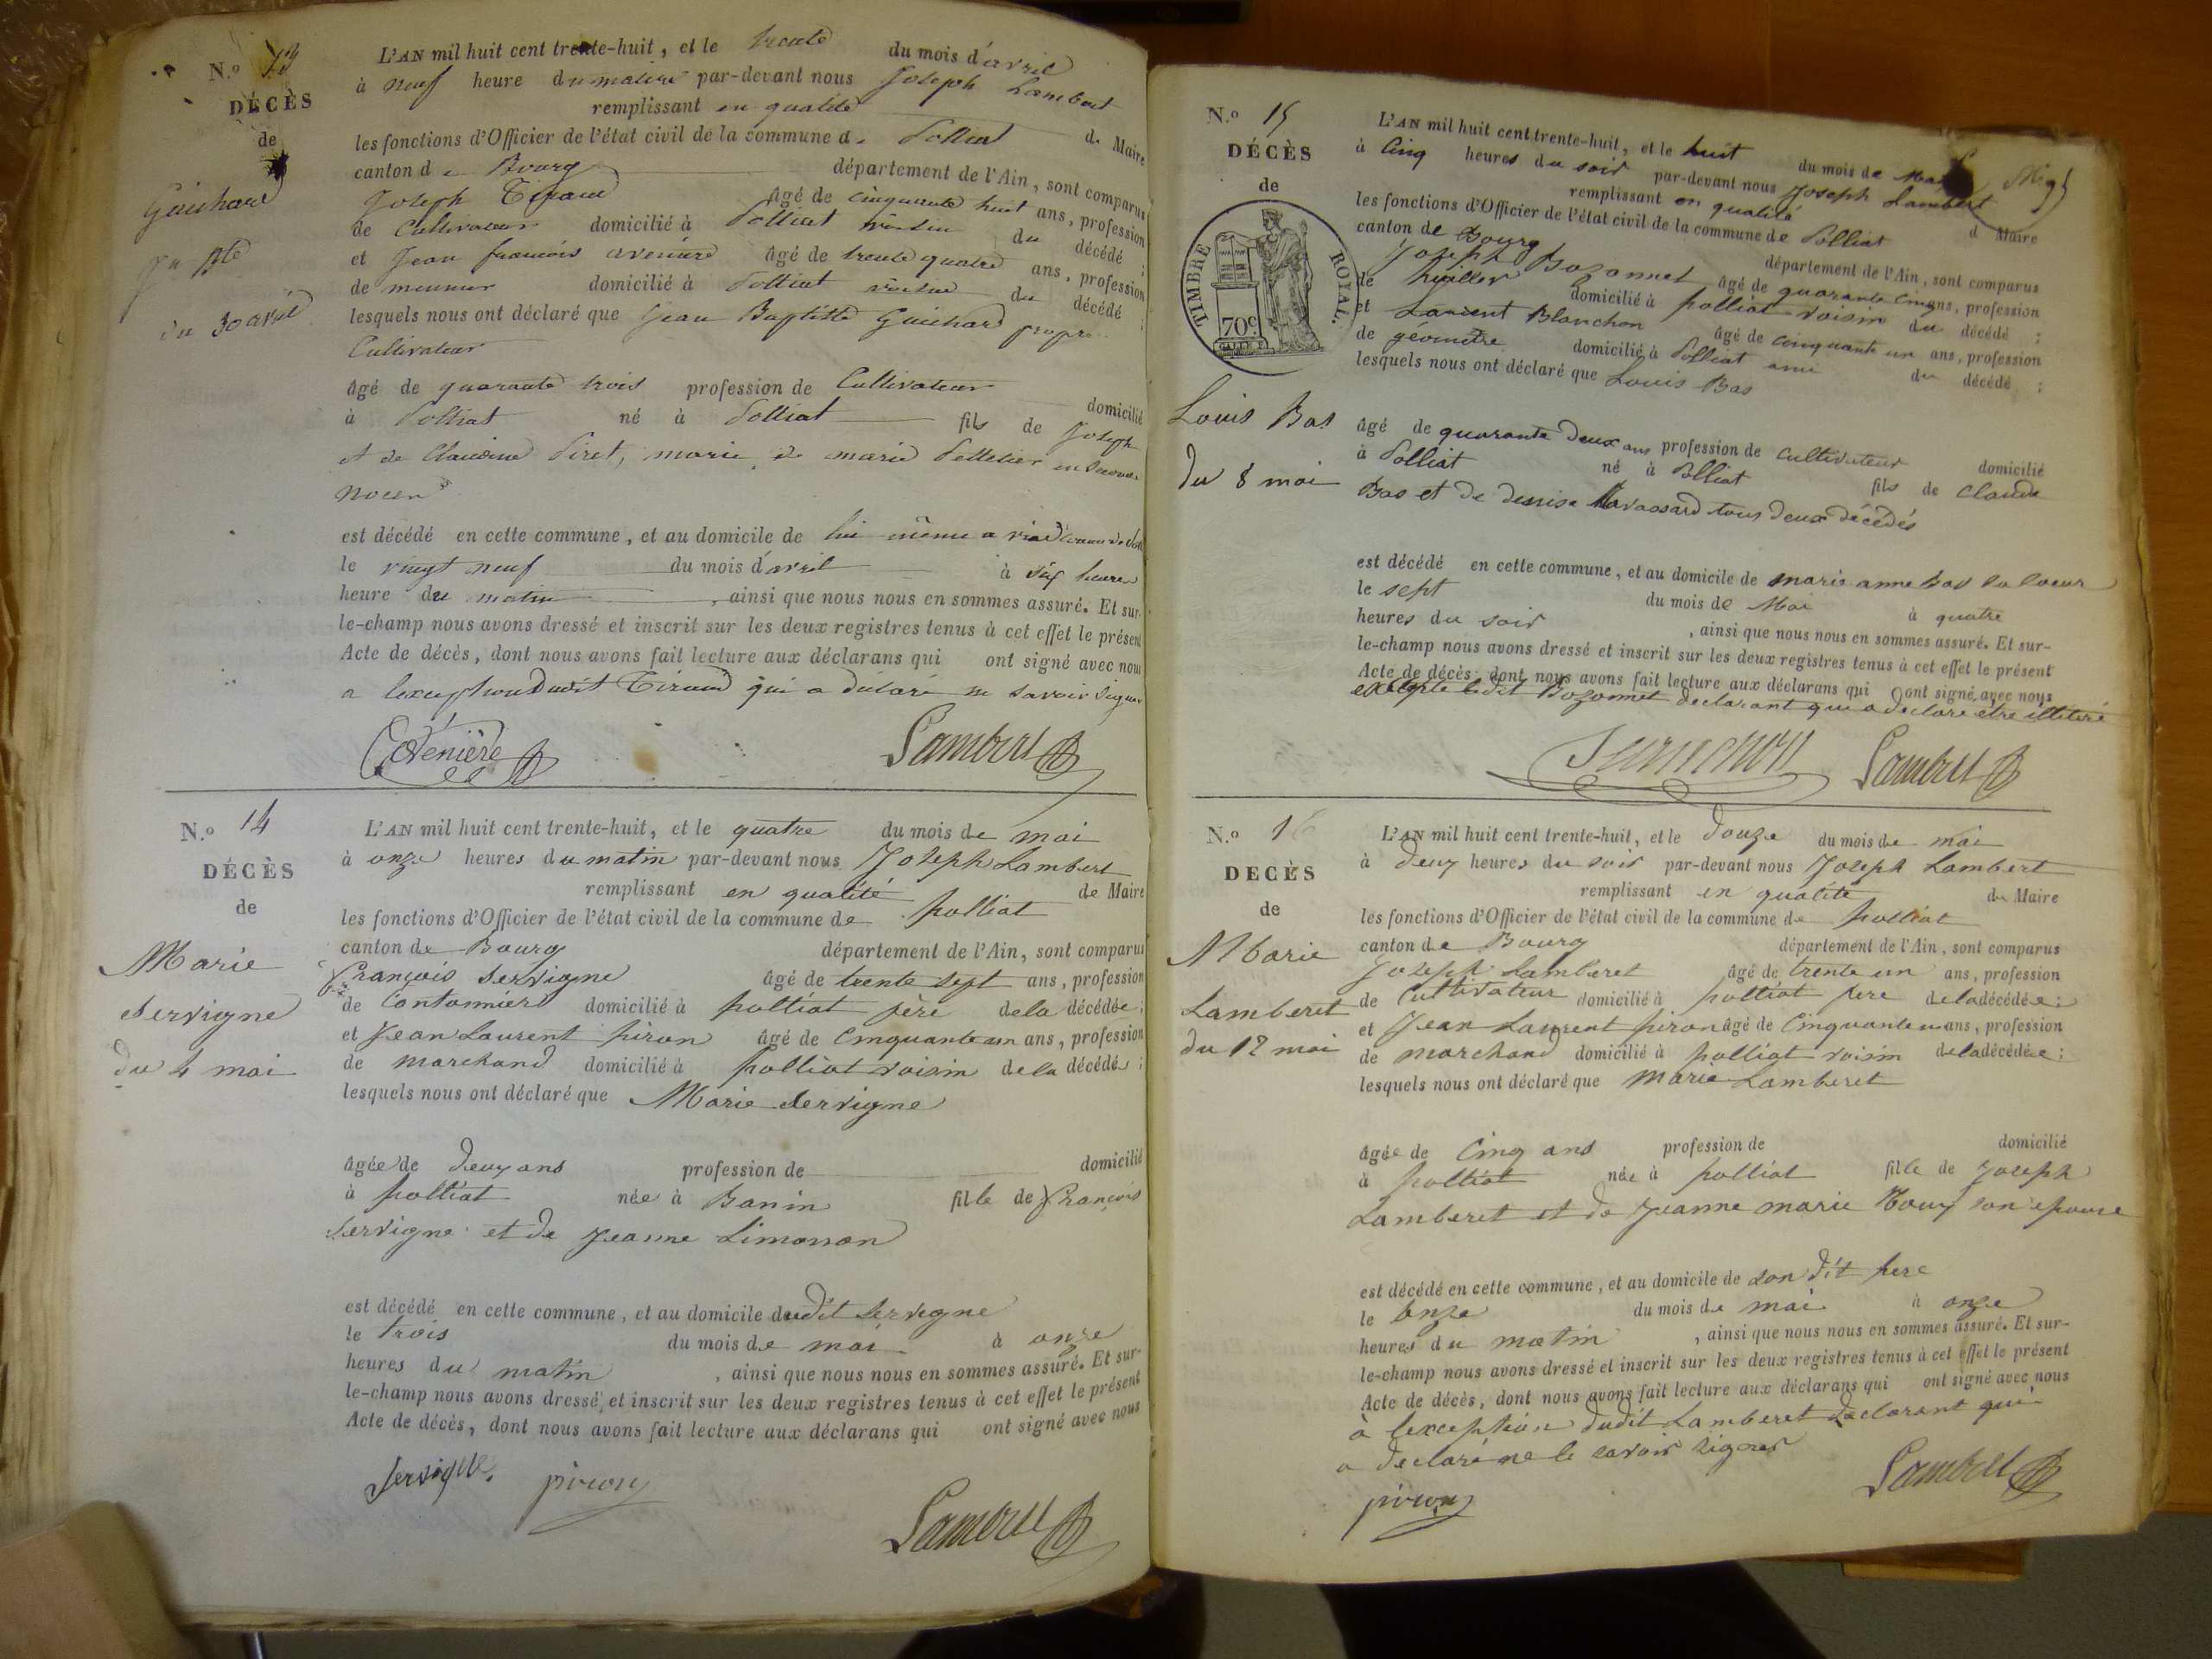 N.º 13
DÉCÈS
de
Guichard
Jn Bte
du 30 avril
L'AN mil huit cent trente-huit, et le trente du mois d'avril
à neuf heure du matin par-devant nous Joseph Lambert
remplissant en qualité de Maire
les fonctions d'Officier de l'état civil de la commune de Polliat
canton de Bourg département de l'Ain, sont comparus
Joseph Tiraud âgé de cinquante huit ans, profession
de Cultivateur domicilié à Polliat voisin du décédé ;
et Jean françois avenière âgé de trente quatre ans, profession
de meunier domicilié à Polliat voisin du décédé ;
lesquels nous ont déclaré que Jean Baptiste Guichard propre
Cultivateur
âgé de quarante trois profession de Cultivateur domicilié
à Polliat né à Polliat fils de Joseph
et de Claudine Piret, marié de marie Pelletier en secondes
noces
est décédé en cette commune, et au domicile de lui même a
le vingt neuf du mois d'avril à six heures
heure du matin, ainsi que nous nous en sommes assuré. Et sur-
le-champ nous avons dressé et inscrit sur les deux registres tenus à cet effet le présent
Acte de décès, dont nous avons fait lecture aux déclarans qui ont signé avec nous
a lexception dudit Tiraud qui a déclaré ne savoir signer
avenière Lambert
N.º 14
DÉCÈS
de
Marie
Servigne
du 4 mai
L'AN mil huit cent trente-huit, et le quatre du mois de mai
à onze heures du matin par-devant nous Joseph Lambert
remplissant en qualité de Maire
les fonctions d'Officier de l'état civil de la commune de polliat
canton de Bourg département de l'Ain, sont comparus
françois Servigne âgé de trente sept ans, profession
de Cantonnier domicilié à polliat père de la décédée ;
et Jean Laurent piron âgé de Cinquante un ans, profession
de marchand domicilié à polliat voisin de la décédé ;
lesquels nous ont déclaré que Marie Servigne
âgée de deux ans profession de domicilié
à polliat née à Banin fille de françois
Servigne et de jeanne Limosson
est décédé en cette commune, et au domicile dudit Servigne
le trois du mois de mai à onze
heures du matin, ainsi que nous nous en sommes assuré. Et sur-
le-champ nous avons dressé et inscrit sur les deux registres tenus à cet effet le présent
Acte de décès, dont nous avons fait lecture aux déclarans qui ont signé avec nous
Servigne piron
Lambert
N.º 15
DÉCÈS
de
TIMBRE ROYAL.
70c
Louis Bas
du 8 mai
L'AN mil huit cent trente-huit, et le huit du mois de Mai
à Cinq heures du soir par-devant nous Joseph Lambert
remplissant en qualité d Maire
les fonctions d'Officier de l'état civil de la commune de Polliat
canton de Bourg département de l'Ain, sont comparus
Joseph Bozonnet âgé de quarante cinq ans, profession
de huillier domicilié à polliat voisin du décédé ;
et Laurent Blanchon âgé de cinquante un ans, profession
de géomètre domicilié à Polliat ami du décédé ;
lesquels nous ont déclaré que Louis Bas
âgé de quarante deux ans profession de cultivateur domicilié
à Polliat né à Polliat fils de Claude
Bas et de denise Ravassard tous deux décédés
est décédé en cette commune, et au domicile de marie anne Bas sa soeur
le sept du mois de Mai à quatre
heures du soir, ainsi que nous nous en sommes assuré. Et sur-
le-champ nous avons dressé et inscrit sur les deux registres tenus à cet effet le présent
Acte de décès, dont nous avons fait lecture aux déclarans qui ont signé avec nous
excepte ledit Bozonnet déclarant qui a déclaré être illitéré
Lambert
N.º 16
DÉCÈS
de
Marie
Lamberet
du 12 mai
L'AN mil huit cent trente-huit, et le douze du mois de mai
à deux heures du soir par-devant nous Joseph Lambert
remplissant en qualité de Maire
les fonctions d'Officier de l'état civil de la commune de polliat
canton de Bourg département de l'Ain, sont comparus
Joseph Lamberet âgé de trente un ans, profession
de Cultivateur domicilié à polliat père de la décédée ;
et Jean Laurent piron âgé de Cinquante un ans, profession
de marchand domicilié à polliat voisin de la décédée ;
lesquels nous ont déclaré que marie Lamberet
âgée de Cinq ans profession de domicilié
à polliat née à polliat fille de Joseph
Lamberet et de Jeanne marie son epouse
est décédé en cette commune, et au domicile de son dit pere
le onze du mois de mai à onze
heures du matin, ainsi que nous nous en sommes assuré. Et sur-
le-champ nous avons dressé et inscrit sur les deux registres tenus à cet effet le présent
Acte de décès, dont nous avons fait lecture aux déclarans qui ont signé avec nous
à lexception dudit Lamberet déclarant qui
a déclaré ne le savoir signer
piron Lambert